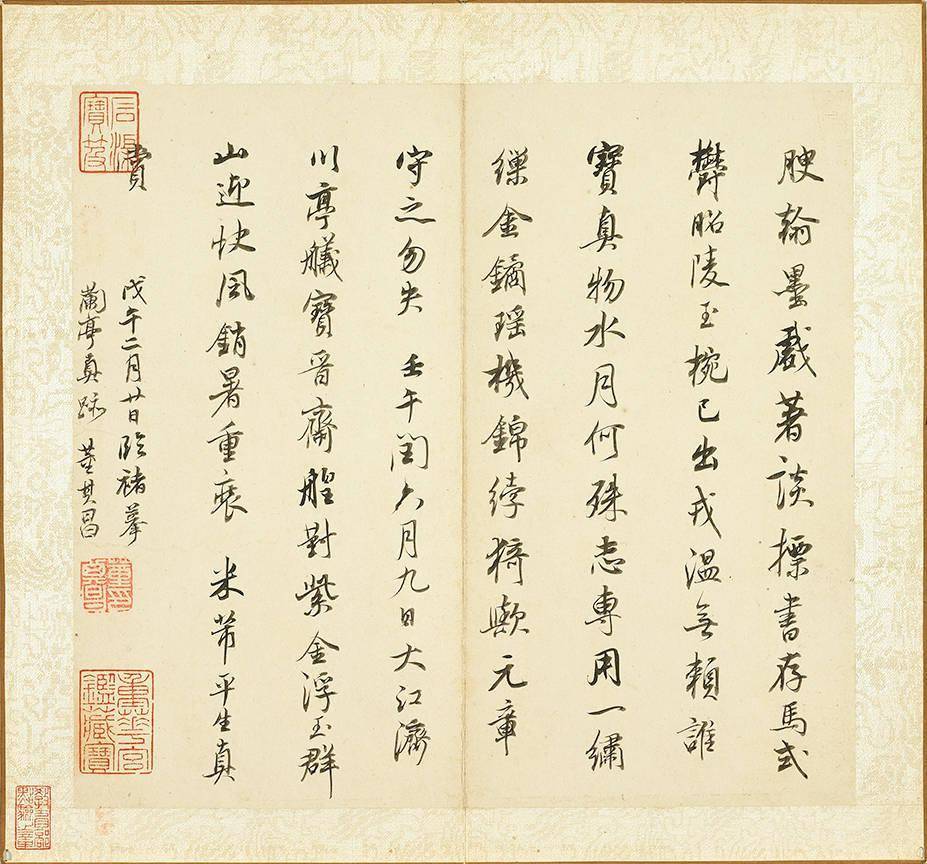 腴翰墨戲著談摽書存馬式
欝昭陵玉椀已出戎溫無頼誰
寶真物水月何殊志專用一繡
繅金鐍瑤機錦綍猗歟元章
守之勿失 壬午閏六月九日大江濟
川亭艤寶晉齋艎對紫金浮玉群
山迎快風銷暑重裝 米芾平生真
賞
戊午二月廿日臨褚摹
蘭亭真跡 董其昌
石渠寶笈
重華宮鑑藏寶
教育部點驗之章